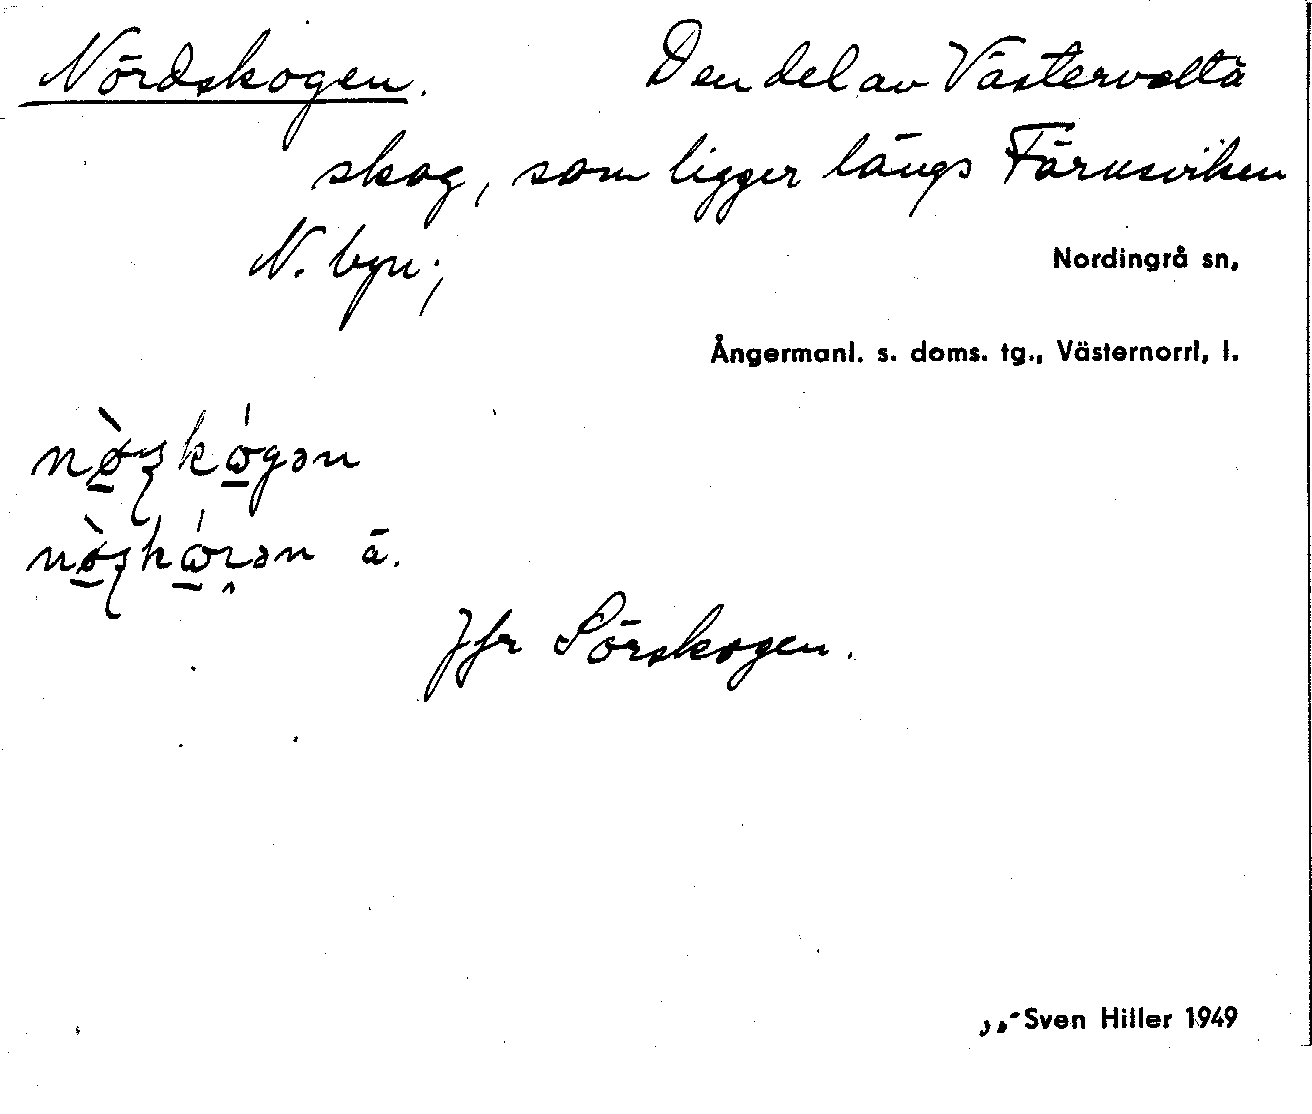 Nördskogen. Den del av Västervalta
skog, som ligger längs Färnsviken
N. byn;
Nordingrå sn,
Ångermanl. s. doms. tg., Västernorrl, l.
ä.
Jfr Sörskogen.
Sven Hiller 1949